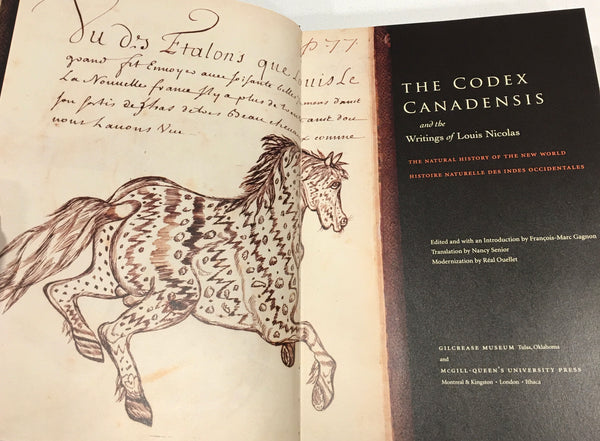 Vu des Etalons que Louis Le p 77
grand fit Enuoyer auec soisante belles
La Nouuelle france
son sortis de
nous Lauons Vue
comme
THE CODEX
CANADENSIS
and the
Writings of Louis Nicolas
THE NATURAL HISTORY OF THE NEW WORLD
HISTOIRE NATURELLE DES INDES OCCIDENTALES
Edited and with an Introduction by François-Marc Gagnon
Translation by Nancy Senior
Modernization by Réal Ouellet
GILCREASE MUSEUM Tulsa, Oklahoma
and
MCGILL-QUEEN'S UNIVERSITY PRESS
Montreal & Kingston • London • Ithaca